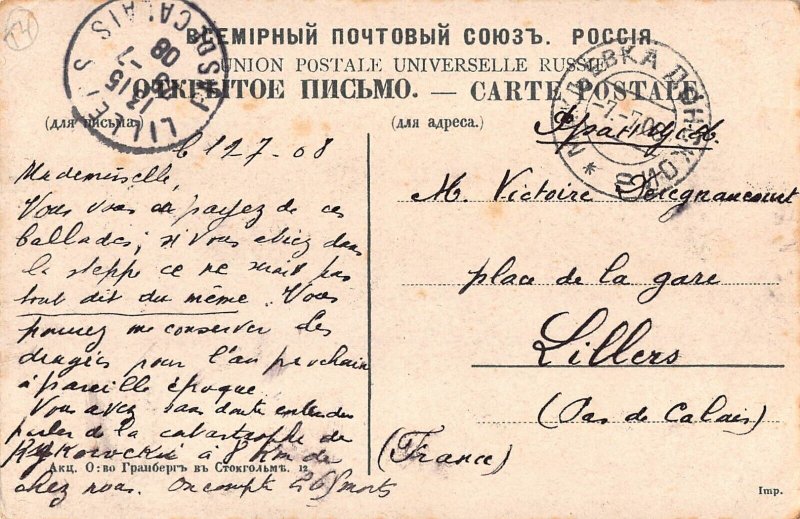 ВСЕМІРНЫЙ ПОЧТОВЫЙ СОЮЗЪ. РОССІЯ.
UNION POSTALE UNIVERSELLE RUSSIE
ОТКРЫТОЕ ПИСЬМО. — CARTE POSTALE
(для письма) (для адреса.)
LILLERS PAS DE CALAIS
13/15
08
7-7.08
Франція.
le 12 7 - 08
Mademoiselle,
Vous vous en payez de ces
ballades; si vous étiez dans
la steppe ce ne serait pas
tout dit du même. Vous
pouvez me conserver des
dragées pour l'an prochain
à pareille époque.
Vous avez sans doute entendu
parler de la catastrophe de
à 8 km de
chez nous. On compte 265 morts
M. Victoire Seignancourt
place de la gare
Lillers
(Pas de Calais)
(France)
Акц. О:во Гранбергъ въ Стокгольмѣ. 12
Imp.